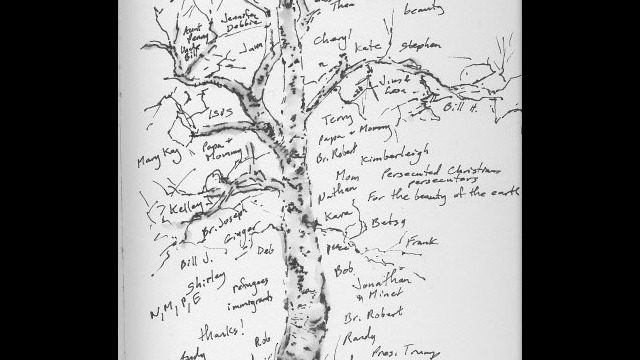 Thea
beauty
Jennifer
Debbie
Aunt
Penny
Uncle
Bill
Jam
Cheryl
Kate
Stephen
Jim &
Bill H.
ISIS
Terry
Papa + Mommy
Mary Kay
Papa +
Mommy
Br. Robert
Kimberleigh
Mom
Persecuted Christians
persecutors
Nathan
For the beauty of the earth
Kelley
Br. Joseph
Kara
Betsy
Ginger
peace
Frank
Bill J.
Deb
Bob
Shirley
refugees
immigrants
Jonathan
& Minet
N, M, P, E
Br. Robert
thanks!
Rob
Randy
Andy
Pres. Trump